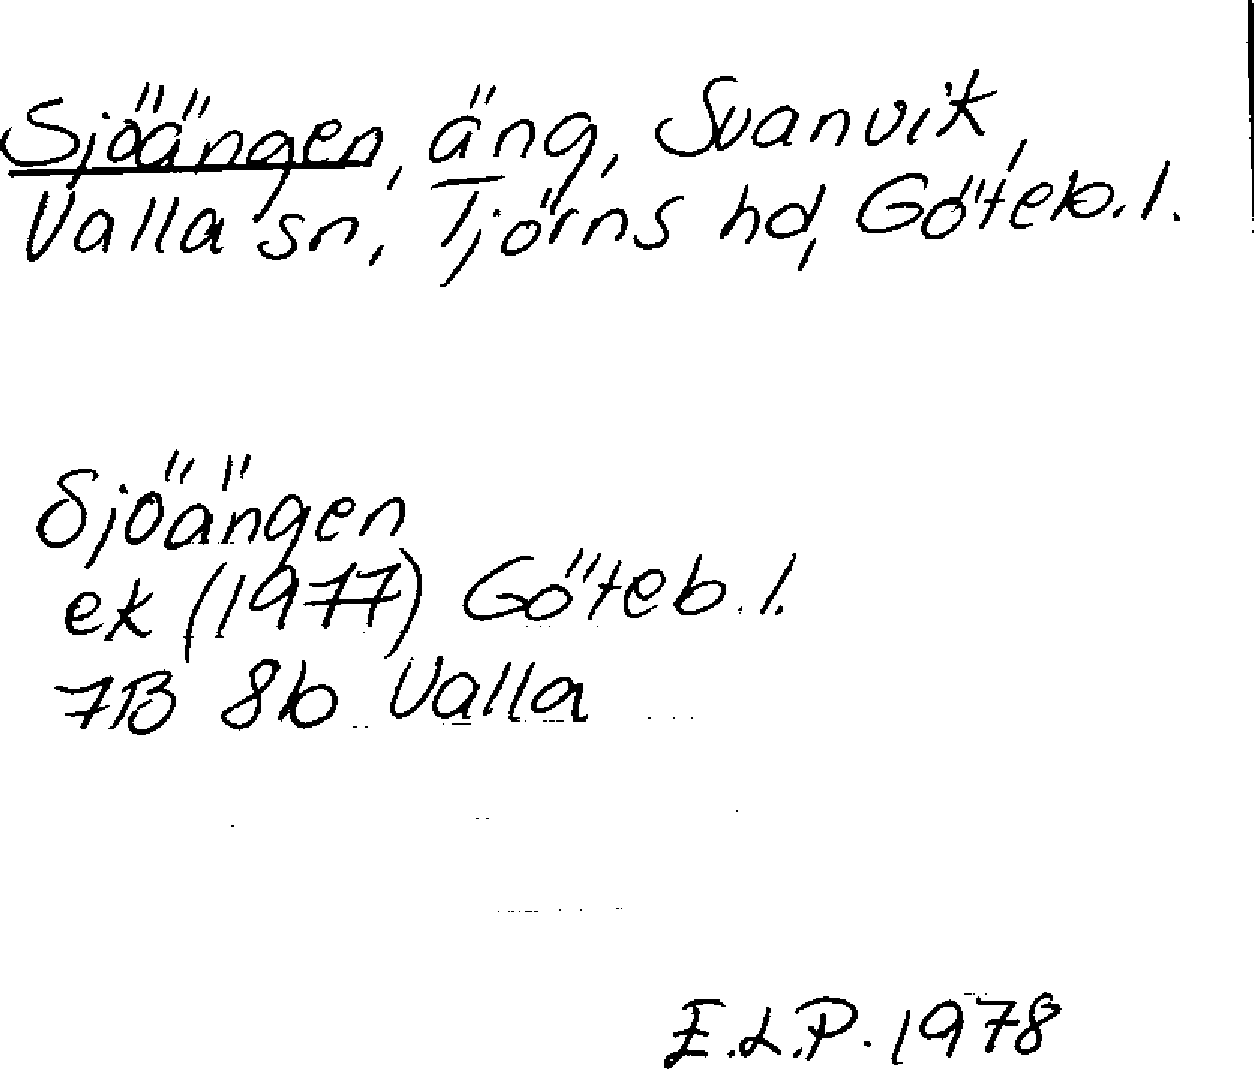 Sjöängen, äng, Svanvik,
Valla sn, Tjörns hd, Göteb. l.
Sjöängen
ek (1977) Göteb. l.
7B 8b Valla
E.L.P. 1978